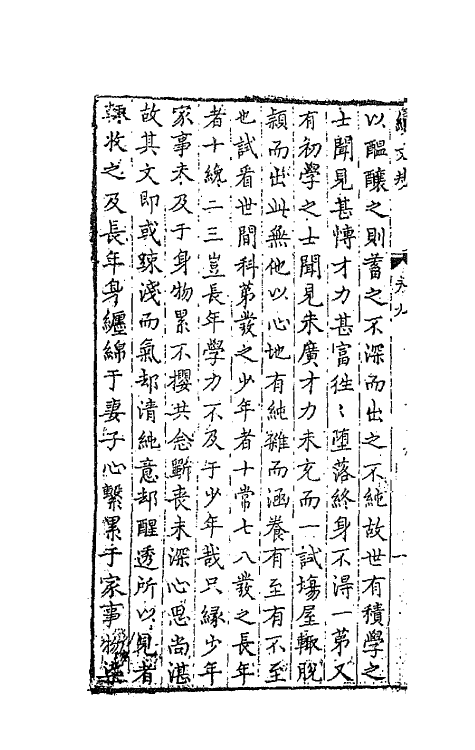 卷九
一
以醞釀之則蓄之不深而出之不純故世有積學之
士聞見甚博才力甚富徃〻墮落終身不得一第又
有初學之士聞見未廣才力未充而一試塲屋輒脫
穎而出此無他以心地有純雜而涵養有至有不至
也試看世間科第發之少年者十常七八發之長年
者十纔二三豈長年學力不及于少年哉只緣少年
家事未及于身物累不攖其念斵喪未深心思尚湛
故其文即或踈淺而氣却清純意却醒透所以見者
輒收之及長年身纏綿于妻子心繫累于家事物